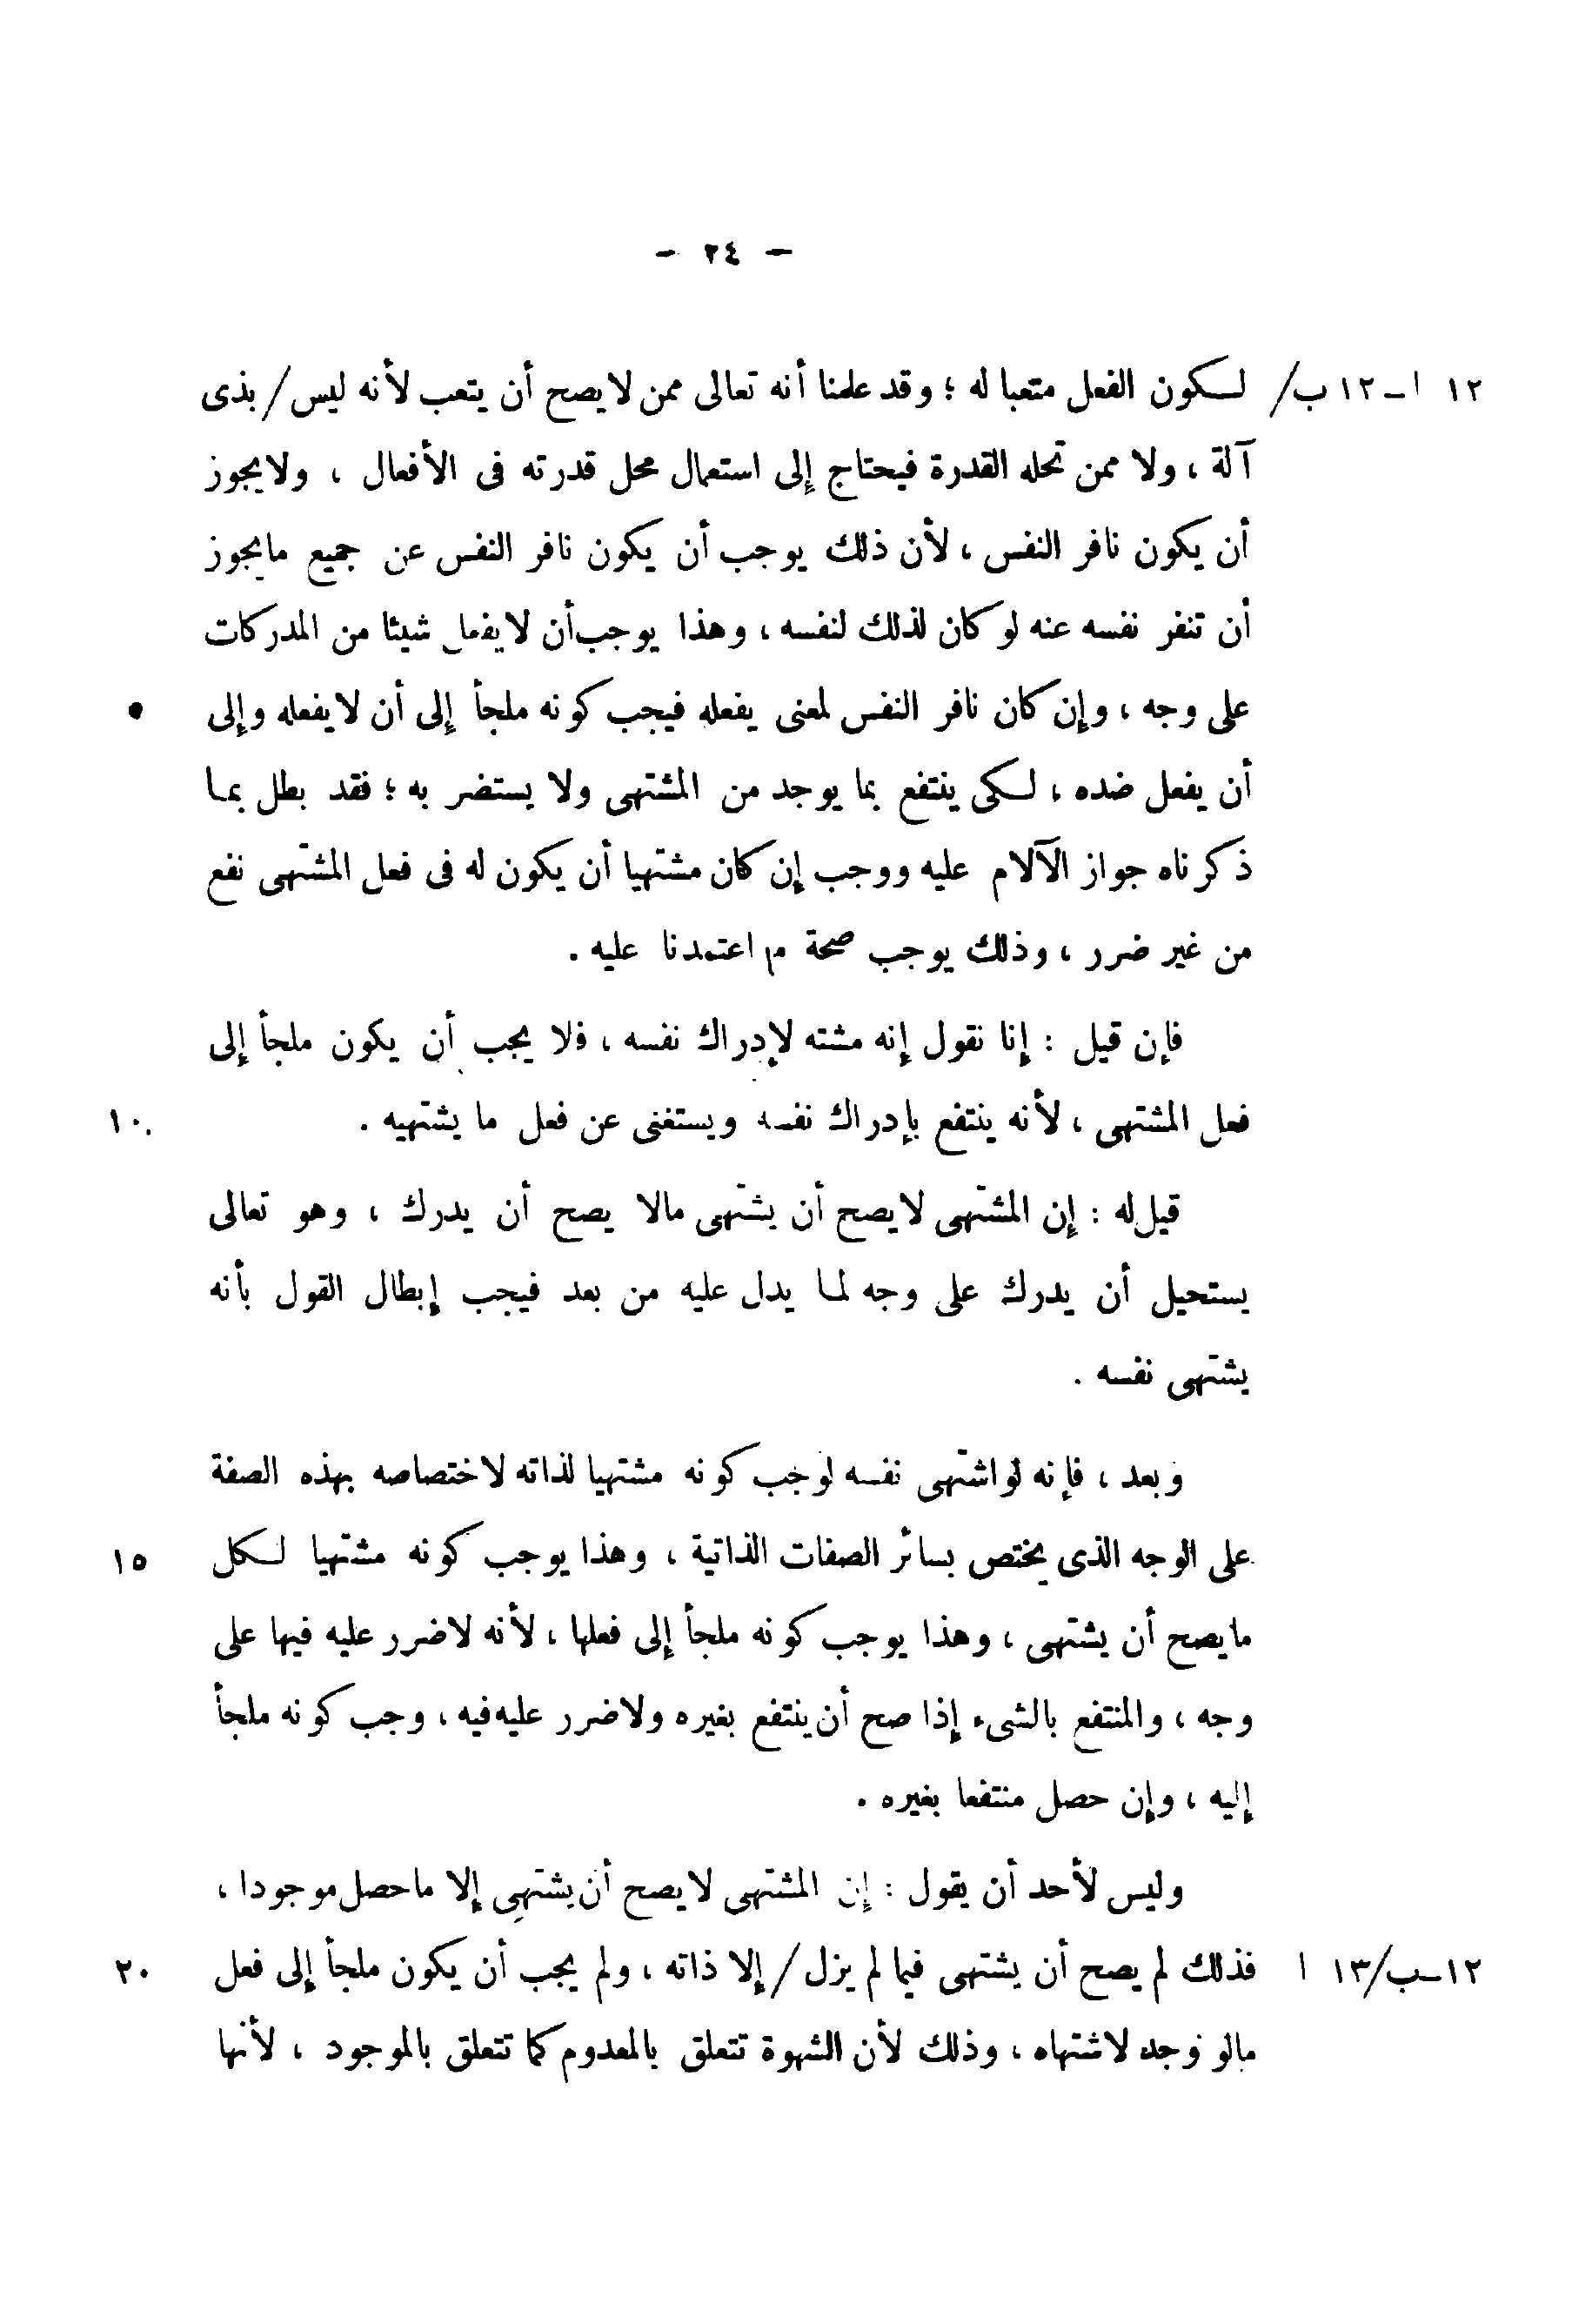 — ٢٤ —
١٢ ا — ١٢ ب/ لـكون الفعل متعبا له ؛ وقد علمنا أنه تعالى ممن لا يصح أن يتعب لأنه ليس / بذى
آلة ، ولا ممن تحله القدرة فيحتاج إلى استعمال محل قدرته فى الأفعال ، ولا يجوز
أن يكون نافر النفس ، لأن ذلك يوجب أن يكون نافر النفس عن جميع ما يجوز
أن تنفر نفسه عنه لو كان لذلك لنفسه ، وهذا يوجب أن لا يفعل شيئا من المدركات
على وجه ، وإن كان نافر النفس لمعنى يفعله فيجب كونه ملجأ إلى أن لا يفعله وإلى ٥
أن يفعل ضده ، لـكى ينتفع بما يوجد من المشتهى ولا يستضر به ؛ فقد بطل بمـا
ذكرناه جواز الآلام عليه ووجب إن كان مشتهيا أن يكون له فى فعل المشتهى نفع
من غير ضرر ، وذلك يوجب صحة م اعتمدنا عليه .
فإن قيل : إنا نقول إنه مشته لإدراك نفسه ، فلا يجب أن يكون ملجأ إلى
فعل المشتهى ، لأنه ينتفع بإدراك نفسه ويستغنى عن فعل ما يشتهيه . ١٠
قيل له : إن المشتهى لا يصح أن يشتهى مالا يصح أن يدرك ، وهو تعالى
يستحيل أن يدرك على وجه لمـا يدل عليه من بعد فيجب إبطال القول بأنه
يشتهى نفسه .
وبعد ، فإنه لو اشتهى نفسه لوجب كونه مشتهيا لذاته لاختصاصه بهذه الصفة
على الوجه الذى يختص بسائر الصفات الذاتية ، وهذا يوجب كونه مشتهيا لـكل ١٥
ما يصح أن يشتهى ، وهذا يوجب كونه ملجأ إلى فعلها ، لأنه لا ضرر عليه فيها على
وجه ، والمنتفع بالشىء إذا صح أن ينتفع بغيره ولا ضرر عليه فيه ، وجب كونه ملجأ
إليه ، وإن حصل منتفعا بغيره .
وليس لأحد أن يقول : إن المشتهى لا يصح أن يشتهى إلا ما حصل موجودا ،
١٢—ب/١٣ ا فذلك لم يصح أن يشتهى فيما لم يزل / إلا ذاته ، ولم يجب أن يكون ملجأ إلى فعل ٢٠
مالو وجد لاشتهاه ، وذلك لأن الشهوة تتعلق بالمعدوم كما تتعلق بالموجود ، لأنها